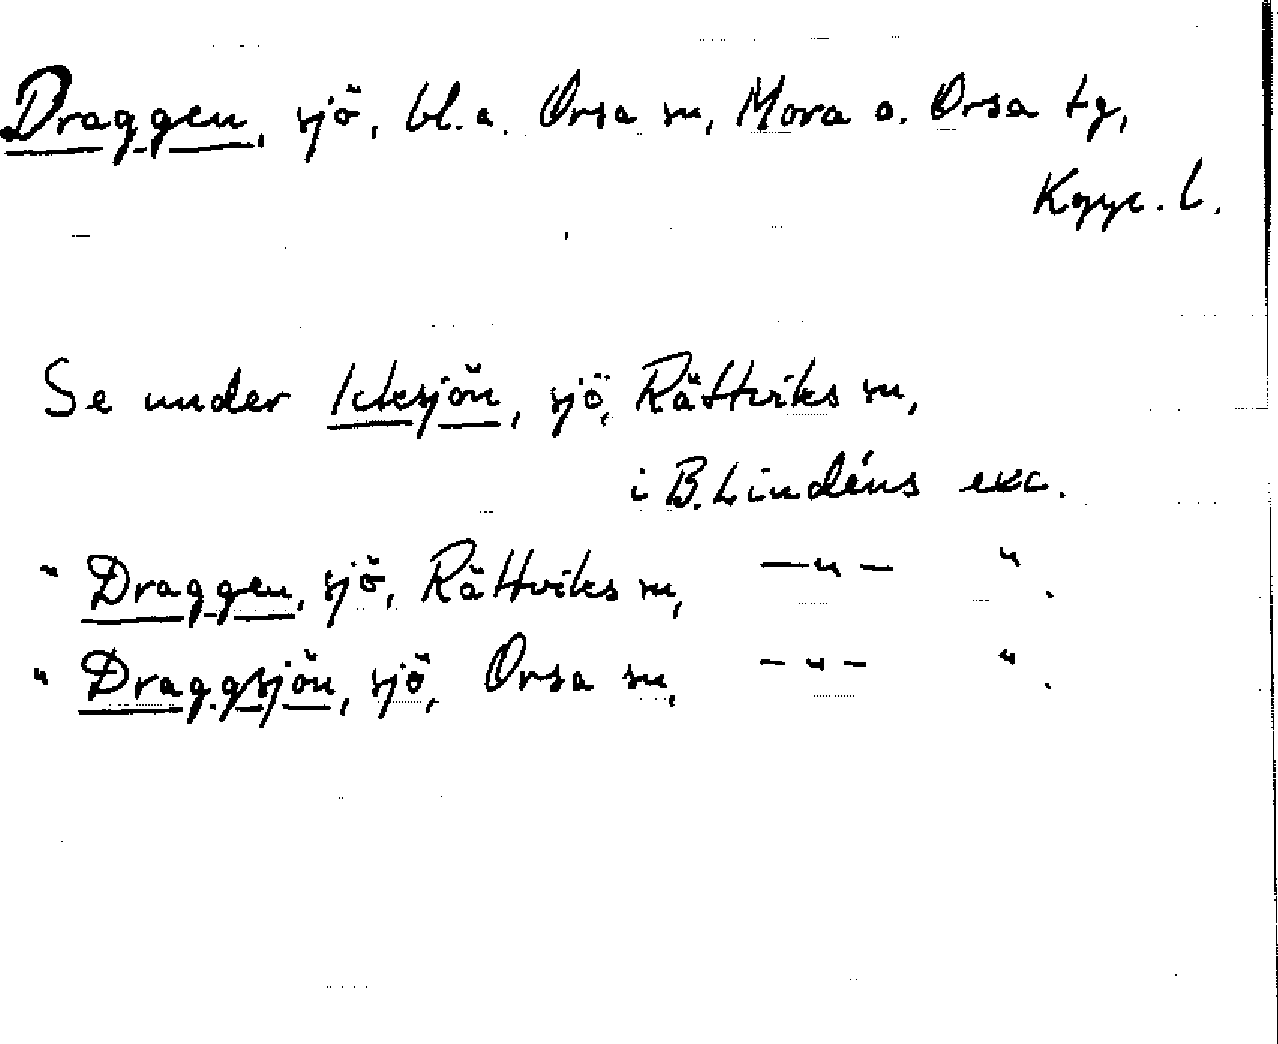 Draggen, sjö, bl.a. Orsa sn, Mora o. Orsa tg,
Kopp. l.
Se under Icksjön, sjö, Rättviks sn,
i B. Lindéns exc.
" Draggen, sjö, Rättviks sn, —"— " .
" Draggsjön, sjö, Orsa sn, —"— " .